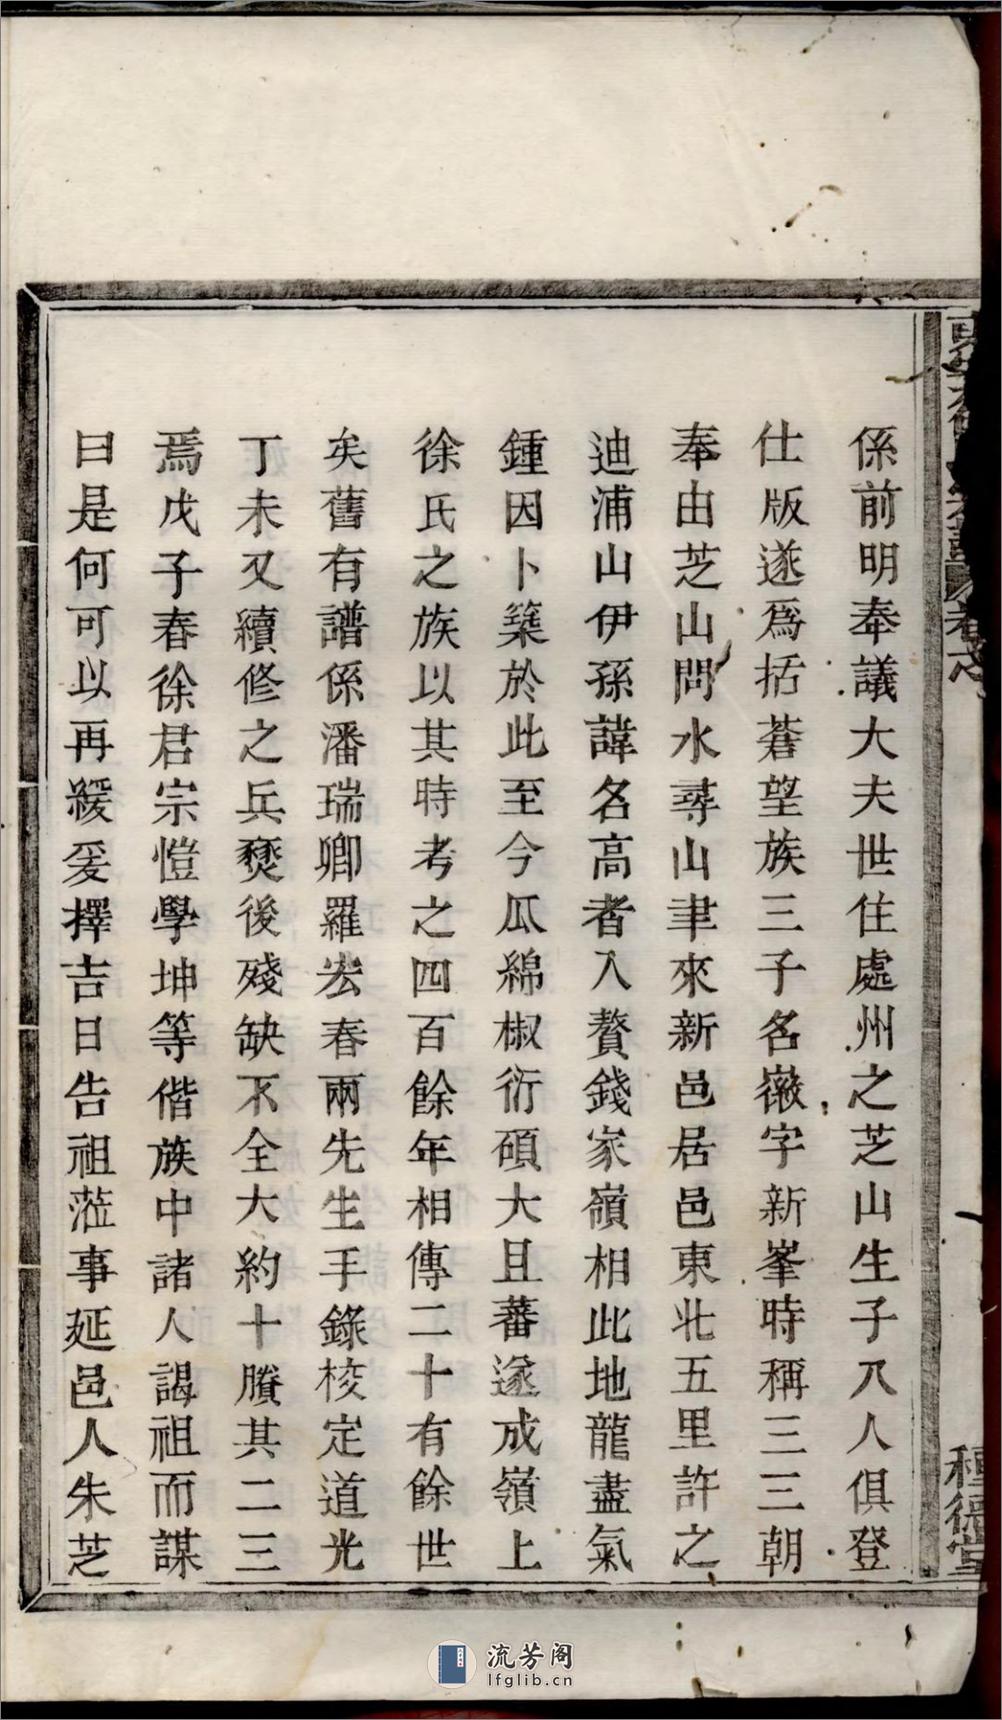 係前明奉議大夫世住處州之芝山生子八人俱登
仕版遂爲括蒼望族三子名嶶字新峯時稱三三朝
奉由芝山問水尋山聿來新邑居邑東北五里許之
迪浦山伊孫諱名高者入贅錢家嶺相此地龍盡氣
鍾因卜築於此至今瓜綿椒衍碩大且蕃遂成嶺上
徐氏之族以其時考之四百餘年相傳二十有餘世
矣舊有譜係潘瑞卿羅宏春兩先生手錄校定道光
丁未又續修之兵燹後殘缺不全大約十賸其二三
焉戊子春徐君宗愷學坤等偕族中諸人謁祖而謀
曰是何可以再緩爰擇吉日告祖蒞事延邑人朱芝
種德堂
流芳阁
lfglib.cn